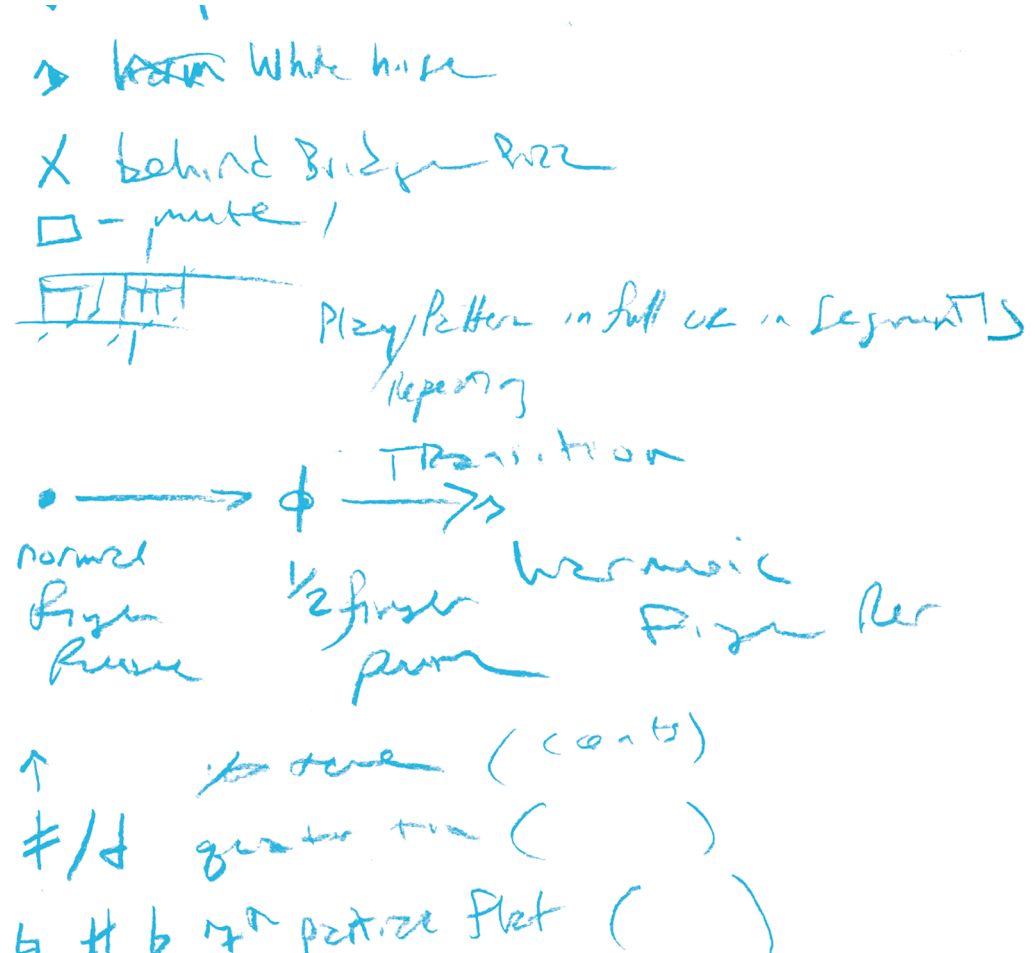 White noise
X behind Bridge Buzz
□ - mute
Play/Pattern in full or in Segments
Repeating
Transition
normal
finger
Pressure
1/2 finger
harmonic
Finger
↑ tone (cents)
quarter tone ( )
b # b 7th partial flat ( )